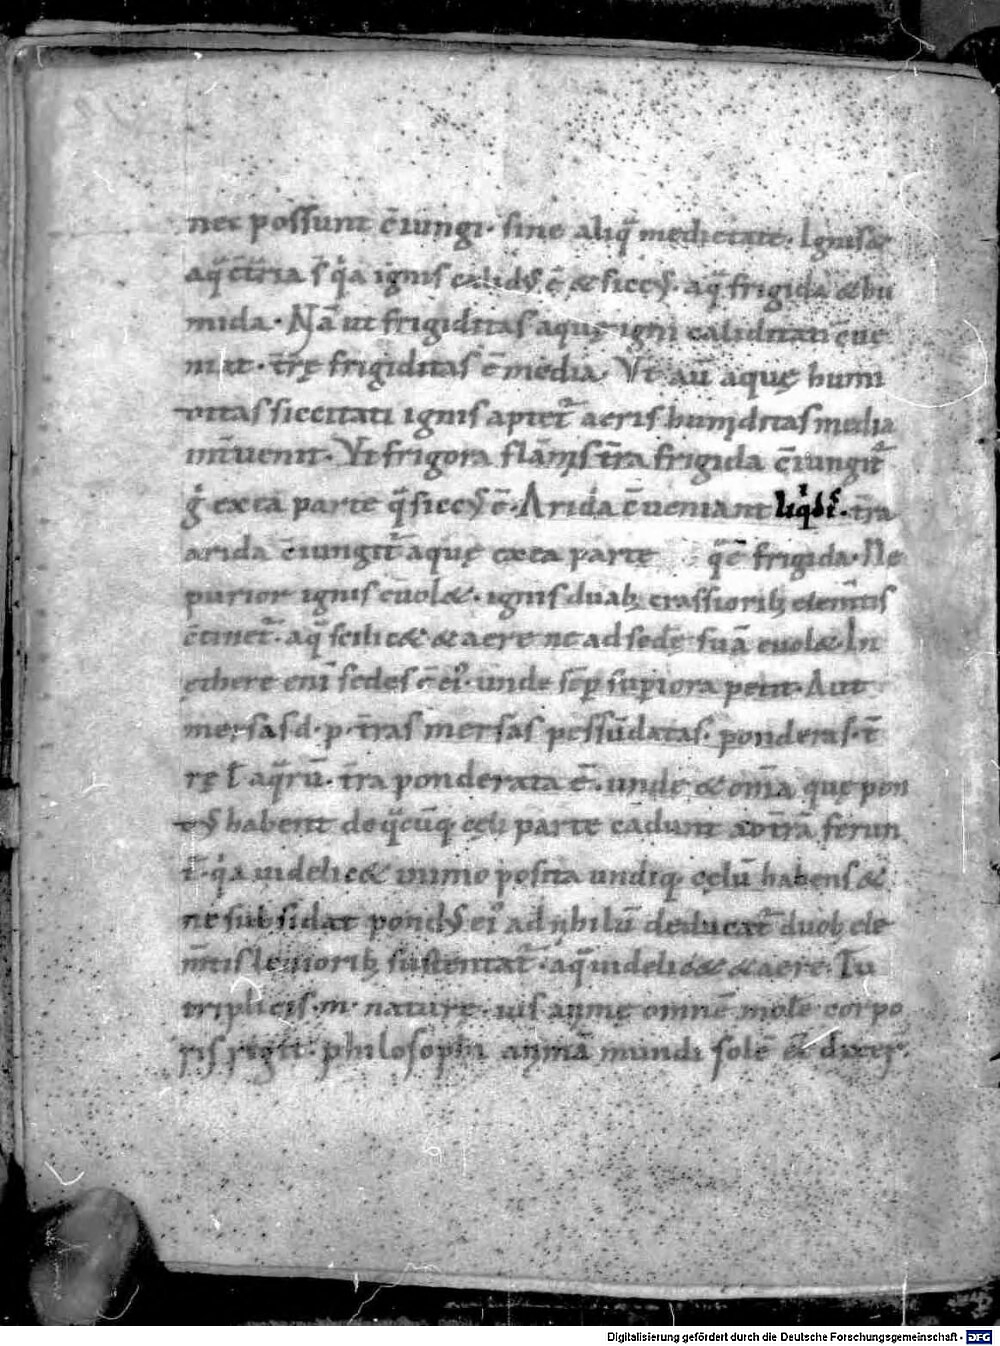 nec possunt c̄iungi· sine aliq̄ medietate· Ignis &
aq̄ c̄t̄ria s̄ q̇a ignis calid⁹ ē & sicc⁹· aq̄ frigida & hu
mida· Nā ut frigiditas aquę igni caliditati c̄ue
niat· t̄rę frigiditas ē media· Vt aū aquę humi
ditas siccitati ignis aptet᷑ aeris humiditas media
int̄uenit· Vt frigora flām̄is t̄ra frigida c̄iungit᷑
g̊ ex ea parte q̄ sicc⁹ ē· Arida c̄ueniant liq̇dis· t̄ra
arida c̄iungit᷑ aquę ex ea parte q̄ ē frigida· Ne
purior ignis euolet· ignis duab; crassiorib; elem̄tis
c̄tinet᷑· aq̄ scilic& & aere ne ad sedē suā euol&· In
ethere eni sedes ē ei⁹· unde sēp sup̄iora petit· Aut
mersas d· p· t̄ras mersas pessūdatas· ponderas· t̄
rę ł aq̄rū· t̄ra ponderata ē· unde & om̄a quę pon
d⁹ habent de q̄cūq; cęli parte cadunt ad t̄rā ferun
t᷑· q̇a uidelic& in imo posita undiq; cęlū habens &
ne subsidat pond⁹ ei⁹ ad nihilū deducat᷑ duob; ele
m̄tis leuiorib; sustentat᷑· aq̄ uidelic& & aere· Tu
triplicis· m· naturę· uis animę omnē molē corpo
ris rigit· philosophi animā mundi solē eē dixer̄·
Digitalisierung gefördert durch die Deutsche Forschungsgemeinschaft - DFG